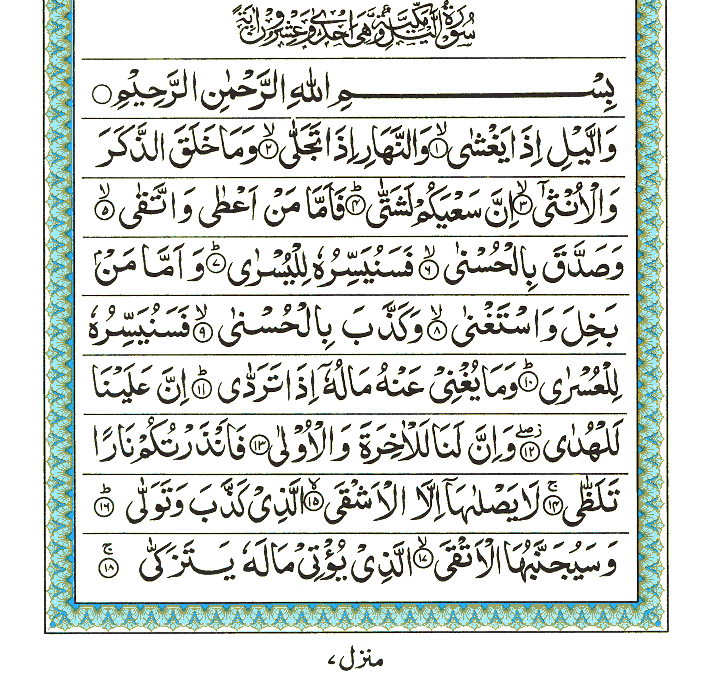 سُوۡرَةُ الَّيۡلِ مَكِّيَّةٌ وَّهِىَ اِحۡدٰى وَعِشۡرُوۡنَ اٰيَةً
بِسۡمِ اللهِ الرَّحۡمٰنِ الرَّحِيۡمِ ○
وَالَّيۡلِ اِذَا يَغۡشٰىۙ‏ ﴿۱﴾ وَالنَّهَارِ اِذَا تَجَلّٰىۙ‏ ﴿۲﴾ وَمَا خَلَقَ الذَّكَرَ
وَالۡاُنۡثٰٓىۙ‏ ﴿۳﴾ اِنَّ سَعۡيَكُمۡ لَشَتّٰىؕ‏ ﴿۴﴾ فَاَمَّا مَنۡ اَعۡطٰى وَاتَّقٰىۙ‏ ﴿۵﴾
وَصَدَّقَ بِالۡحُسۡنٰىۙ‏ ﴿۶﴾ فَسَنُيَسِّرُهٗ لِلۡيُسۡرٰىؕ‏ ﴿۷﴾ وَاَمَّا مَنۡۢ
بَخِلَ وَاسۡتَغۡنٰىۙ‏ ﴿۸﴾ وَكَذَّبَ بِالۡحُسۡنٰىۙ‏ ﴿۹﴾ فَسَنُيَسِّرُهٗ
لِلۡعُسۡرٰىؕ‏ ﴿۱۰﴾ وَمَا يُغۡنِىۡ عَنۡهُ مَالُهٗۤ اِذَا تَرَدّٰىؕ‏ ﴿۱۱﴾ اِنَّ عَلَيۡنَا
لَلۡهُدٰى ۖ‏ ﴿۱۲﴾ وَاِنَّ لَنَا لَلۡاٰخِرَةَ وَالۡاُوۡلٰى‏ ﴿۱۳﴾ فَاَنۡذَرۡتُكُمۡ نَارًا
تَلَظّٰى‌ۚ‏ ﴿۱۴﴾ لَا يَصۡلٰٮهَاۤ اِلَّا الۡاَشۡقَىۙ‏ ﴿۱۵﴾ الَّذِىۡ كَذَّبَ وَتَوَلّٰىؕ‏ ﴿۱۶﴾
وَسَيُجَنَّبُهَا الۡاَتۡقَىۙ‏ ﴿۱۷﴾ الَّذِىۡ يُؤۡتِىۡ مَالَهٗ يَتَزَكّٰى‌ۚ‏ ﴿۱۸﴾
منزل ۷